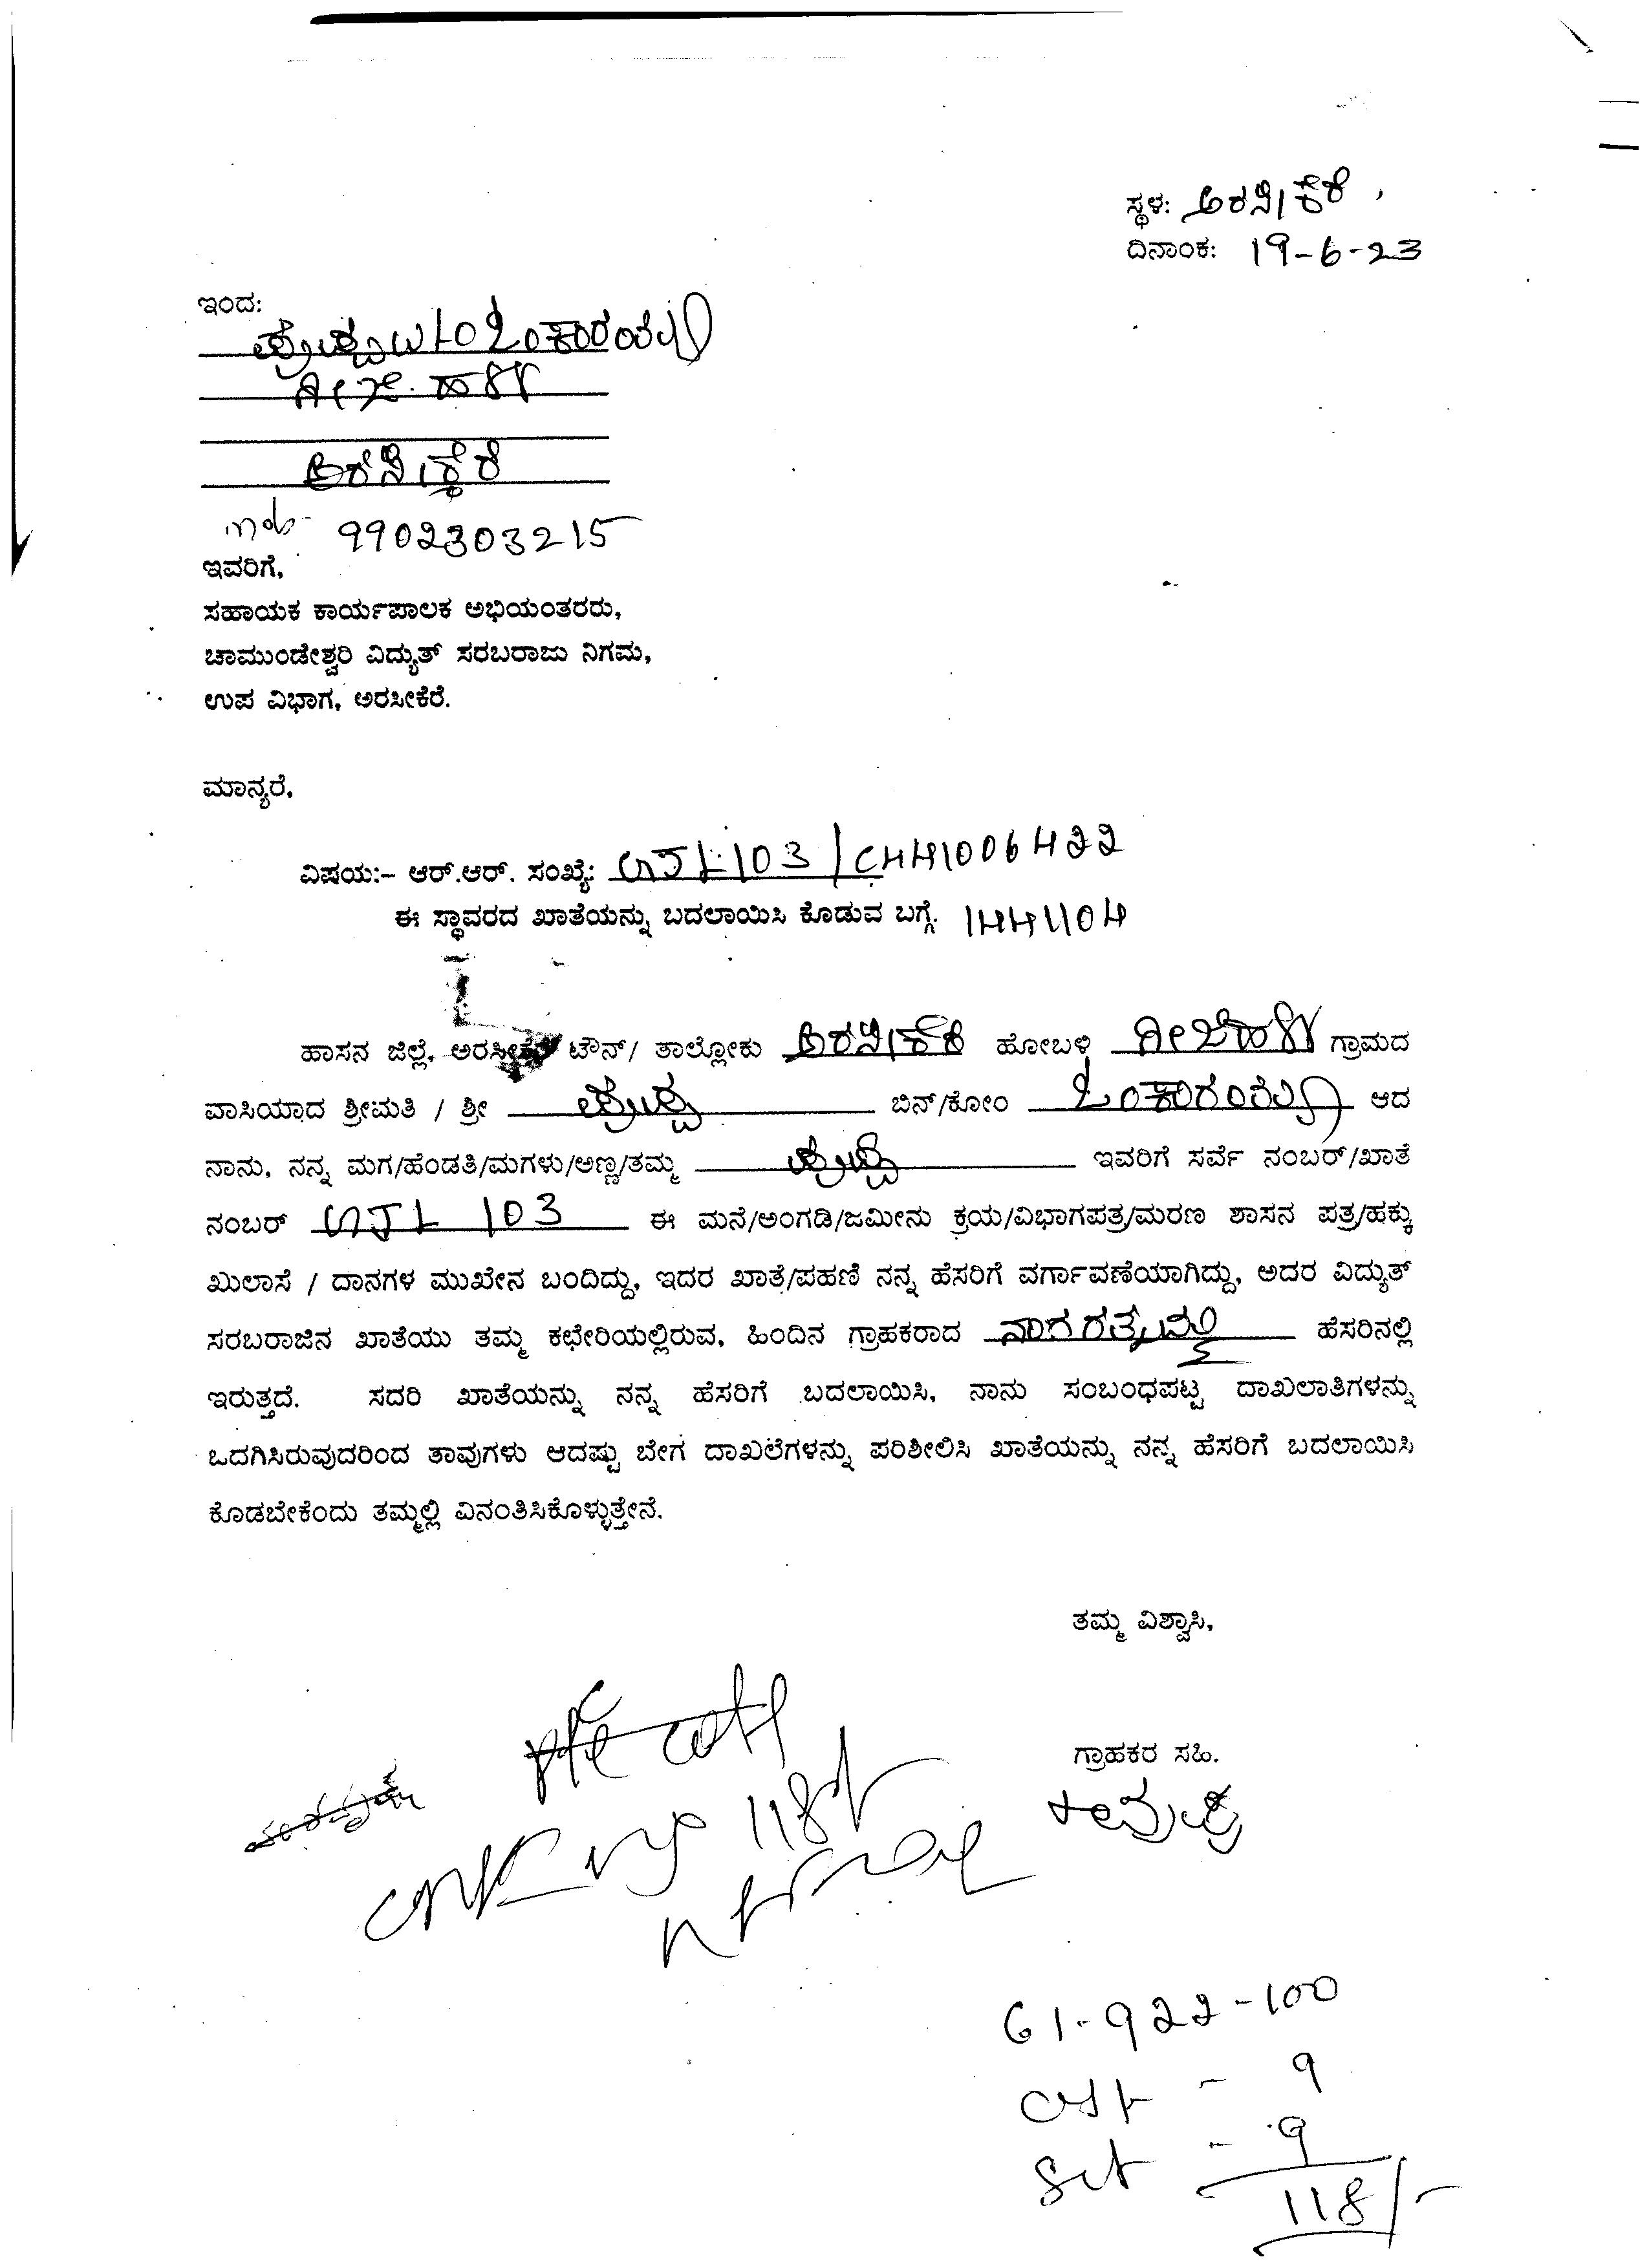 ಸ್ಥಳ: ಅರಸೀಕೆರೆ
ದಿನಾಂಕ: 19-6-23
ಇಂದ:
ಪುಷ್ಪ w/o ಓಂಕಾರಯ್ಯ
ಅರಸೀಕೆರೆ
mob- 9902303215
ಇವರಿಗೆ,
ಸಹಾಯಕ ಕಾರ್ಯಪಾಲಕ ಅಭಿಯಂತರರು,
ಚಾಮುಂಡೇಶ್ವರಿ ವಿದ್ಯುತ್ ಸರಬರಾಜು ನಿಗಮ,
ಉಪ ವಿಭಾಗ, ಅರಸೀಕೆರೆ.
ಮಾನ್ಯರೆ,
ವಿಷಯ:- ಆರ್.ಆರ್. ಸಂಖ್ಯೆ: 103
ಈ ಸ್ಥಾವರದ ಖಾತೆಯನ್ನು ಬದಲಾಯಿಸಿ ಕೊಡುವ ಬಗ್ಗೆ.
ಹಾಸನ ಜಿಲ್ಲೆ, ಅರಸೀಕೆರೆ ಟೌನ್/ ತಾಲ್ಲೋಕು ಅರಸೀಕೆರೆ ಹೋಬಳಿ ಗ್ರಾಮದ
ವಾಸಿಯಾದ ಶ್ರೀಮತಿ / ಶ್ರೀ ಪುಷ್ಪ ಬಿನ್/ಕೋಂ ಓಂಕಾರಯ್ಯ ಆದ
ನಾನು, ನನ್ನ ಮಗ/ಹೆಂಡತಿ/ಮಗಳು/ಅಣ್ಣ/ತಮ್ಮ ಪುಷ್ಪ ಇವರಿಗೆ ಸರ್ವೆ ನಂಬರ್/ಖಾತೆ
ನಂಬರ್ 103 ಈ ಮನೆ/ಅಂಗಡಿ/ಜಮೀನು ಕ್ರಯ/ವಿಭಾಗಪತ್ರ/ಮರಣ ಶಾಸನ ಪತ್ರ/ಹಕ್ಕು
ಖುಲಾಸೆ / ದಾನಗಳ ಮುಖೇನ ಬಂದಿದ್ದು, ಇದರ ಖಾತೆ/ಪಹಣಿ ನನ್ನ ಹೆಸರಿಗೆ ವರ್ಗಾವಣೆಯಾಗಿದ್ದು, ಅದರ ವಿದ್ಯುತ್
ಸರಬರಾಜಿನ ಖಾತೆಯು ತಮ್ಮ ಕಛೇರಿಯಲ್ಲಿರುವ, ಹಿಂದಿನ ಗ್ರಾಹಕರಾದ ನಾಗರತ್ನಮ್ಮ ಹೆಸರಿನಲ್ಲಿ
ಇರುತ್ತದೆ. ಸದರಿ ಖಾತೆಯನ್ನು ನನ್ನ ಹೆಸರಿಗೆ ಬದಲಾಯಿಸಿ, ನಾನು ಸಂಬಂಧಪಟ್ಟ ದಾಖಲಾತಿಗಳನ್ನು
ಒದಗಿಸಿರುವುದರಿಂದ ತಾವುಗಳು ಆದಷ್ಟು ಬೇಗ ದಾಖಲೆಗಳನ್ನು ಪರಿಶೀಲಿಸಿ ಖಾತೆಯನ್ನು ನನ್ನ ಹೆಸರಿಗೆ ಬದಲಾಯಿಸಿ
ಕೊಡಬೇಕೆಂದು ತಮ್ಮಲ್ಲಿ ವಿನಂತಿಸಿಕೊಳ್ಳುತ್ತೇನೆ.
ತಮ್ಮ ವಿಶ್ವಾಸಿ,
ಗ್ರಾಹಕರ ಸಹಿ.
118/-
61-922-100
- 9
- 9
118/-